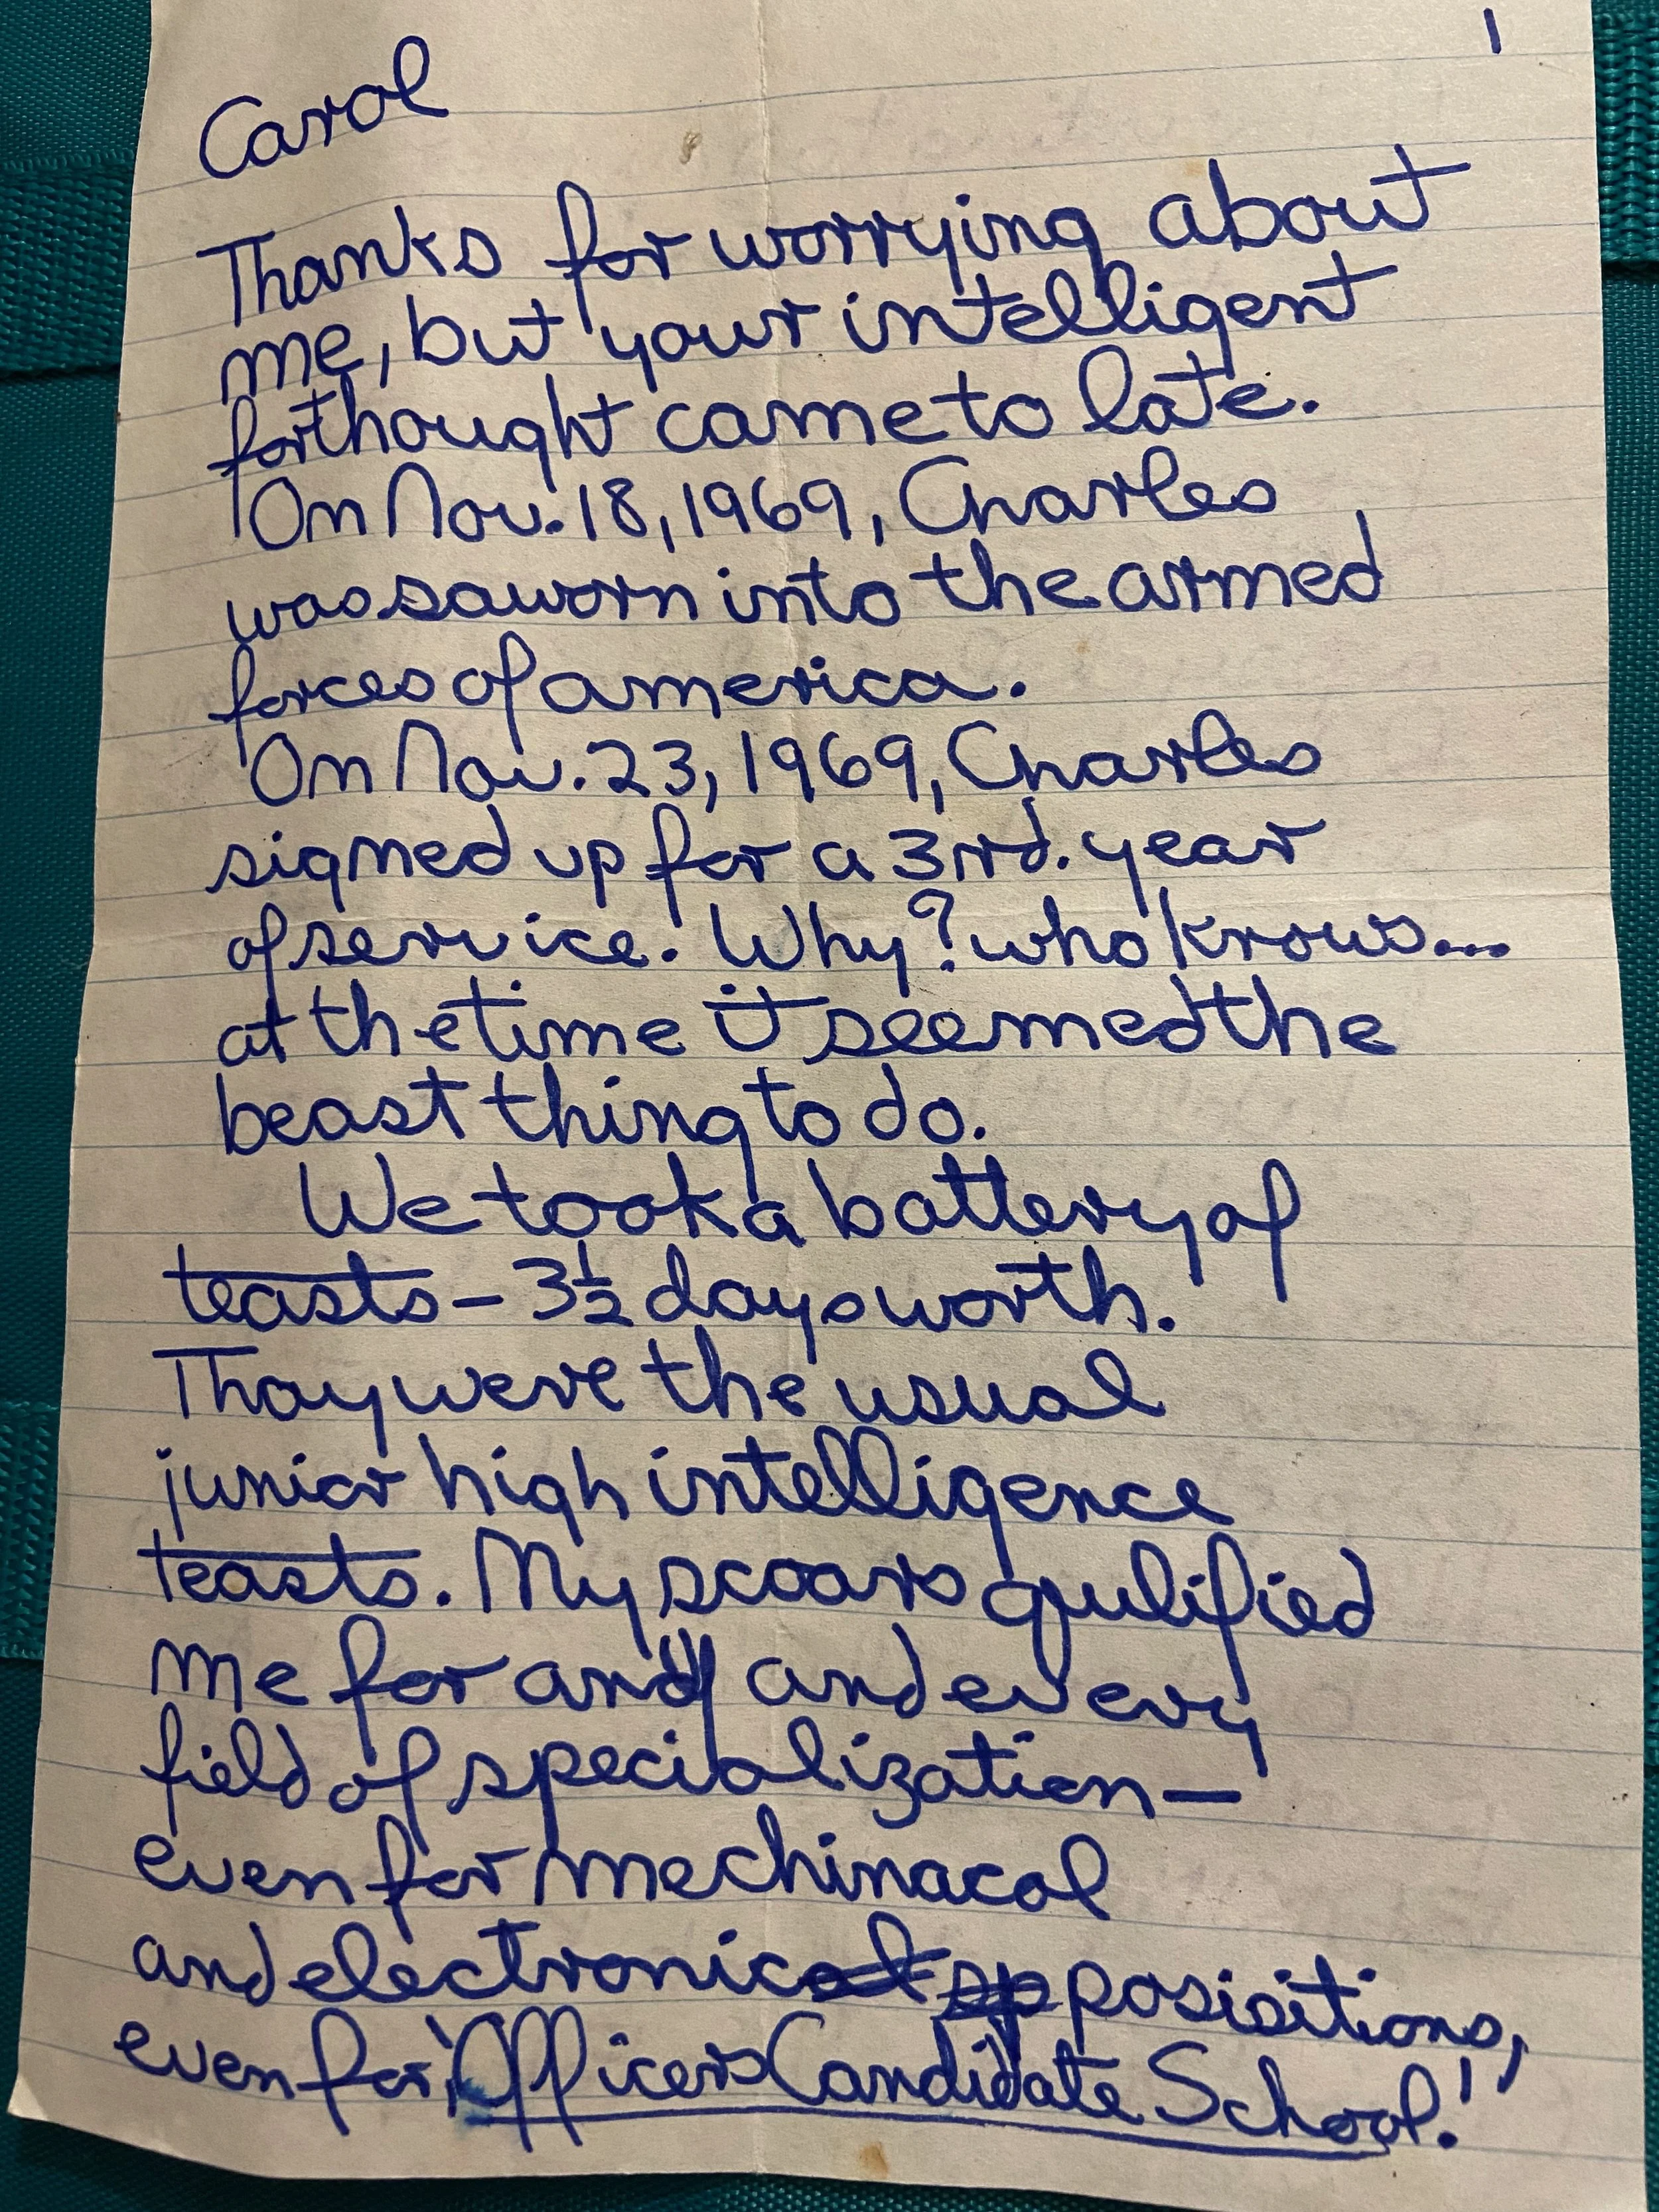 1
Carol
Thanks for worrying about
me, but your intelligent
forthought came to late.
On Nov. 18, 1969, Charles
was saworn into the armed
forces of america.
On Nov. 23, 1969, Charles
signed up for a 3rd. year
of service. Why? who knows...
at the time it seemed the
beast thing to do.
We took a battery of
teasts - 3½ days worth.
Thay were the usual
junior high intelligence
teasts. My scoars qulified
me for andy and every
field of specialization -
even for mechinacal
and electronic posisitions,
even for "Officers Candidate School."